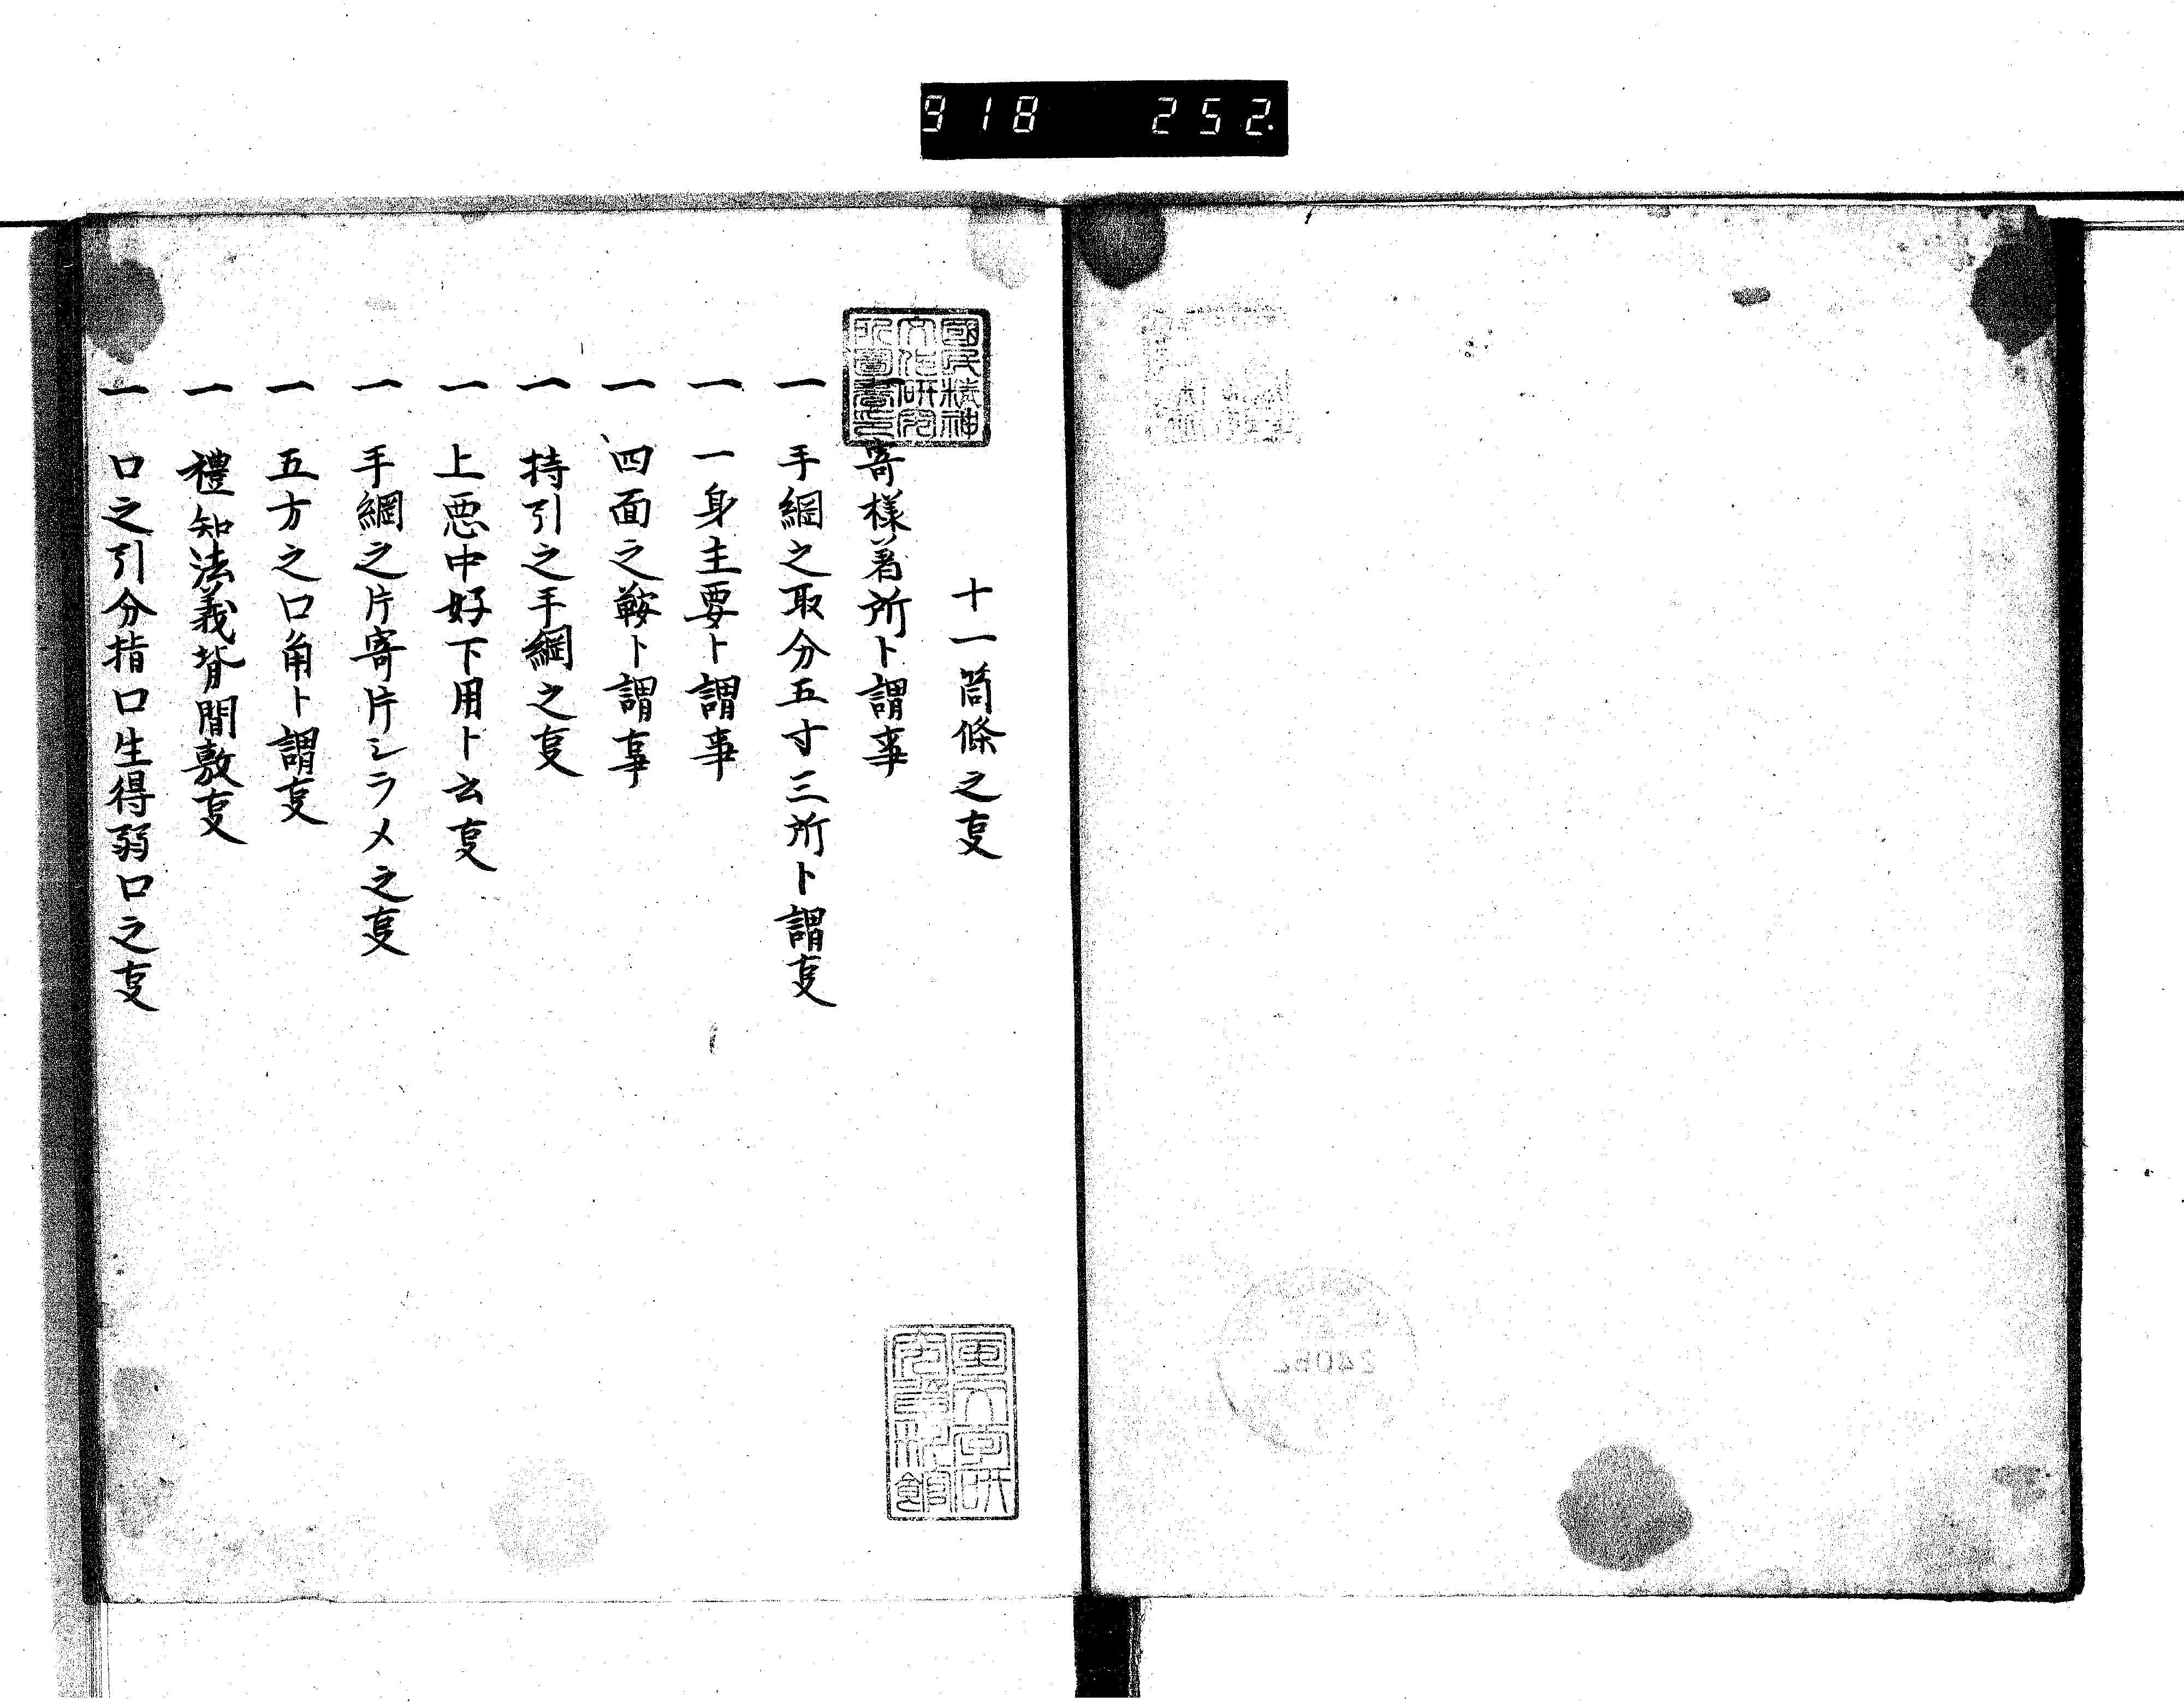 918 252
十一箇條之㕝
寄様着所ト謂事
一 手綱之取分五寸三所ト謂㕝
一 一身主要ト謂事
一 四面之鞍ト謂事
一 持引之手綱之㕝
一 上悪中好下用ト云㕝
一 手綱之片寄片シラメ之㕝
一 五方之口角ト謂㕝
一 禮知法義背間敷㕝
一 口之引分指口生得弱口之㕝
國民精神文化研究所圖書之印